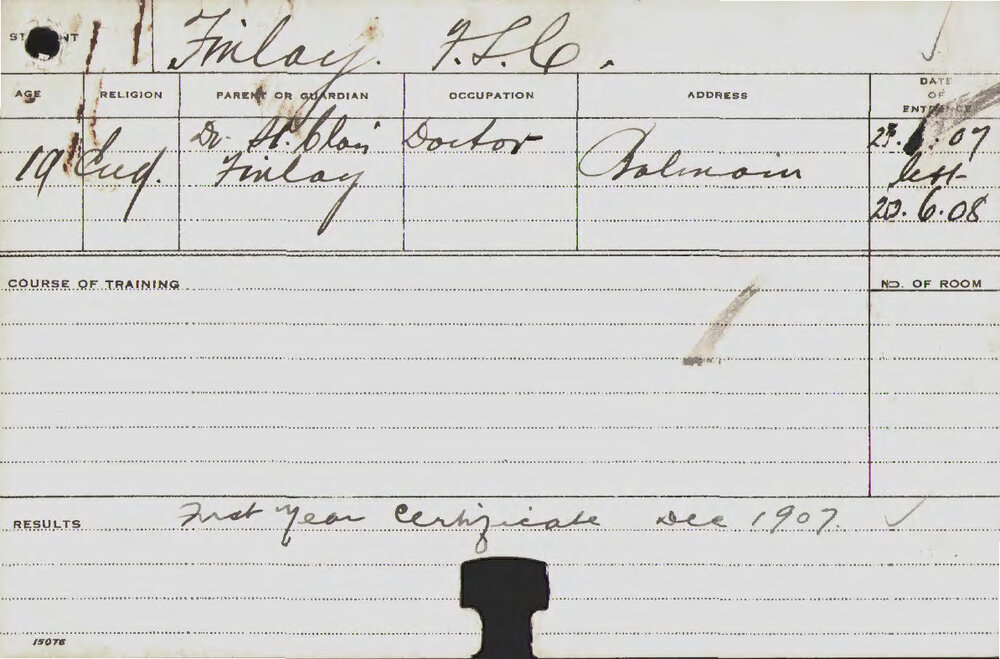 STUDENT Finlay. F. S. C.
AGE RELIGION PARENT OR GUARDIAN OCCUPATION ADDRESS DATE OF ENTRANCE
19 Eng. Dr. St. Clair Finlay Doctor Balmain 07
left
6.08
COURSE OF TRAINING NO. OF ROOM
RESULTS First Year Certificate Dec 1907
15076